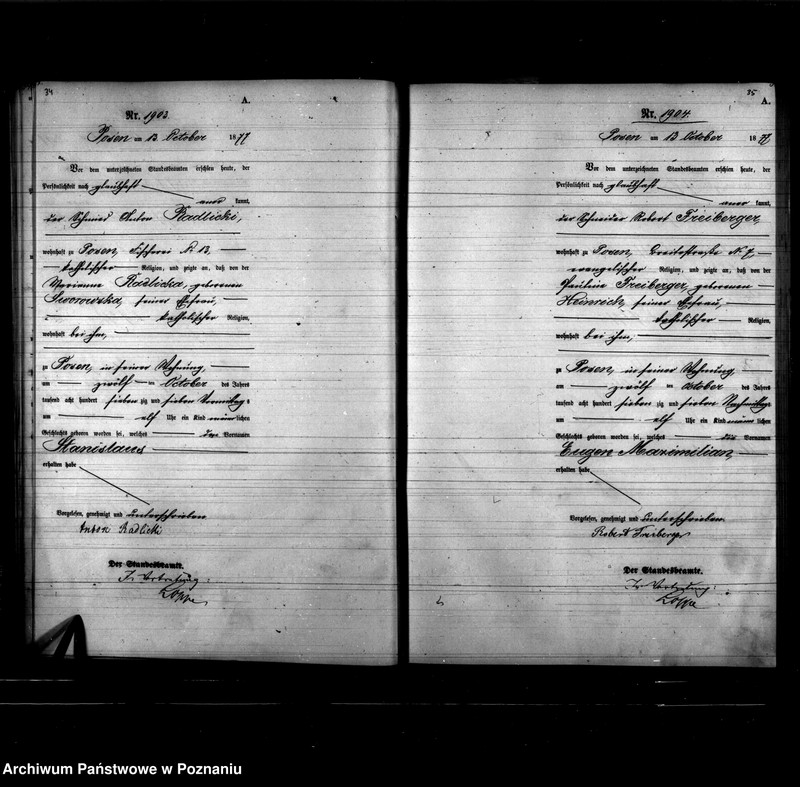 34
A.
Nr. 1903.
Posen am 13 October 1877
Vor dem unterzeichneten Standesbeamten erschien heute, der
Persönlichkeit nach glaubhaft
aner kannt,
der Schmied Anton Radlicki,
wohnhaft zu Posen, Fischerei N 13,
katholischer Religion, und zeigte an, daß von der
Marianne Radlicka, geborenen
seiner Ehefrau,
katholischer Religion,
wohnhaft bei ihm,
zu Posen, in seiner Wohnung,
am zwölf ten October des Jahres
tausend acht hundert sieben zig und sieben Vormittags
um elf Uhr ein Kind männlichen
Geschlechts geboren worden sei, welches den Vornamen
Stanislaus
erhalten habe
Vorgelesen, genehmigt und unterschrieben
Anton Radlicki
Der Standesbeamte.
In Vertretung:
35
A.
Nr. 1904.
Posen am 13 October 1877
Vor dem unterzeichneten Standesbeamten erschien heute, der
Persönlichkeit nach glaubhaft
aner kannt,
der Schneider Robert Freiberger,
wohnhaft zu Posen, Breitestraße N 7,
evangelischer Religion, und zeigte an, daß von der
Freiberger, geborenen
Heinrich, seiner Ehefrau,
katholischer Religion,
wohnhaft bei ihm,
zu Posen, in seiner Wohnung
am zwölf ten October des Jahres
tausend acht hundert sieben zig und sieben Nachmittags
um elf Uhr ein Kind männlichen
Geschlechts geboren worden sei, welches die Vornamen
Eugen Maximilian,
erhalten habe
Vorgelesen, genehmigt und unterschrieben
Robert Freiberger
Der Standesbeamte.
In Vertretung:
Archiwum Państwowe w Poznaniu